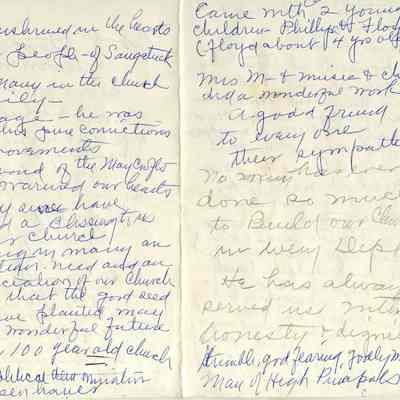 enshrined in the hearts
people - of Saugatuck
Many in the church
ily -
age - he was
his pure convictions
provements
end of the Maycrofts
warmed our hearts
have
d a Blessing to us
r church
ing in many an
need and an
ciation of our church
that the good seed
ve planted may
wonderful future
100 year old church
Came with 2 young
children Phillip & Floyd
(Floyd about 4 yrs old
Mrs M - & Music & ch
did a wonderful work
A good friend
to every one
their sympath
No has ever
done so muc
to Build our Chu
in every Dep
He has alway
served us
honesty & dign
humble, god fearing, godly m
Man of High Principals